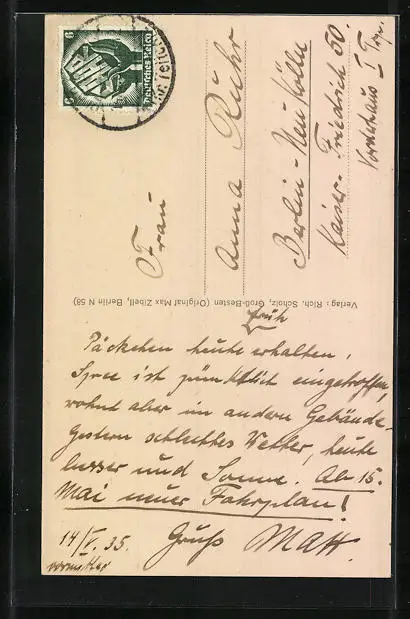 Deutsches Reich
6
6
Frau
Anna Ruhr
Berlin - Neukölln
Kaiser-Friedrich 50.
Vorderhaus I Trp.
Verlag: Rich. Scholz, Groß-Besten (Original Max Zibell, Berlin N 58)
früh
Päckchen heute erhalten,
Spree ist pünktlich eingetroffen,
wohnt aber im andern Gebäude.
Gestern schlechtes Wetter, heute
besser und Sonne. Ab 15.
Mai neuer Fahrplan!
14/V. 35. Gruß
vormittag